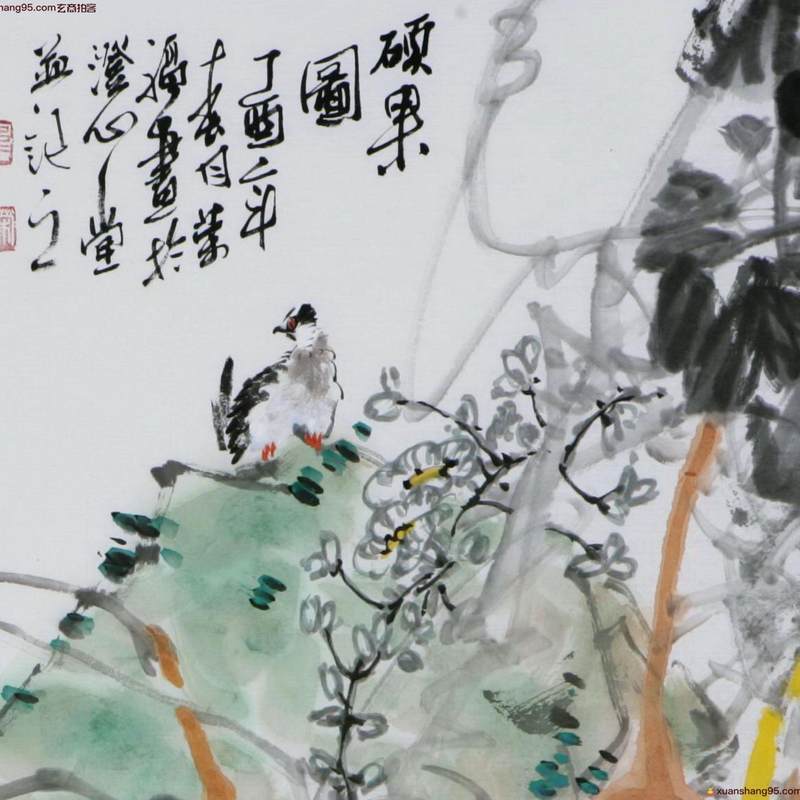 hang95.com玄商拍客
碩果
圖
丁酉之年
月
畫於
澄心堂
並記之
xuanshang95.com